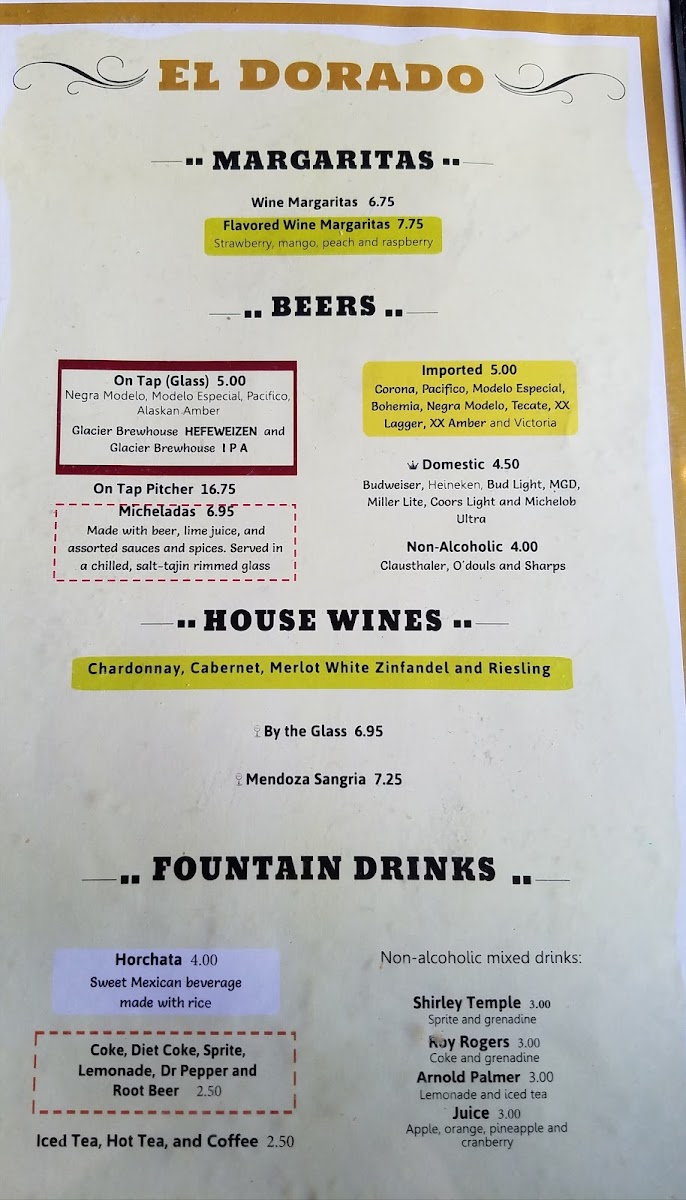 EL DORADO
MARGARITAS
Wine Margaritas 6.75
Flavored Wine Margaritas 7.75
Strawberry, mango, peach and raspberry
BEERS
On Tap (Glass) 5.00
Negra Modelo, Modelo Especial, Pacifico,
Alaskan Amber
Glacier Brewhouse HEFEWEIZEN and
Glacier Brewhouse IPA
On Tap Pitcher 16.75
Micheladas 6.95
Made with beer, lime juice, and
assorted sauces and spices. Served in
a chilled, salt-tajin rimmed glass
Imported 5.00
Corona, Pacifico, Modelo Especial,
Bohemia, Negra Modelo, Tecate, XX
Lagger, XX Amber and Victoria
Domestic 4.50
Budweiser, Heineken, Bud Light, MGD,
Miller Lite, Coors Light and Michelob
Ultra
Non-Alcoholic 4.00
Clausthaler, O'douls and Sharps
HOUSE WINES
Chardonnay, Cabernet, Merlot White Zinfandel and Riesling
By the Glass 6.95
Mendoza Sangria 7.25
FOUNTAIN DRINKS
Horchata 4.00
Sweet Mexican beverage
made with rice
Coke, Diet Coke, Sprite,
Lemonade, Dr Pepper and
Root Beer 2.50
Iced Tea, Hot Tea, and Coffee 2.50
Non-alcoholic mixed drinks:
Shirley Temple 3.00
Sprite and grenadine
Roy Rogers 3.00
Coke and grenadine
Arnold Palmer 3.00
Lemonade and iced tea
Juice 3.00
Apple, orange, pineapple and
cranberry